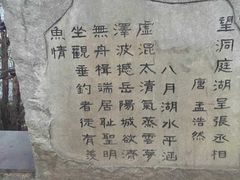 望洞庭湖呈張丞相
唐 孟浩然
八月湖水平涵
虛混太清氣蒸雲夢
澤波撼岳陽城欲濟
無舟楫端居耻聖明
坐觀垂釣者徒有羨
魚情